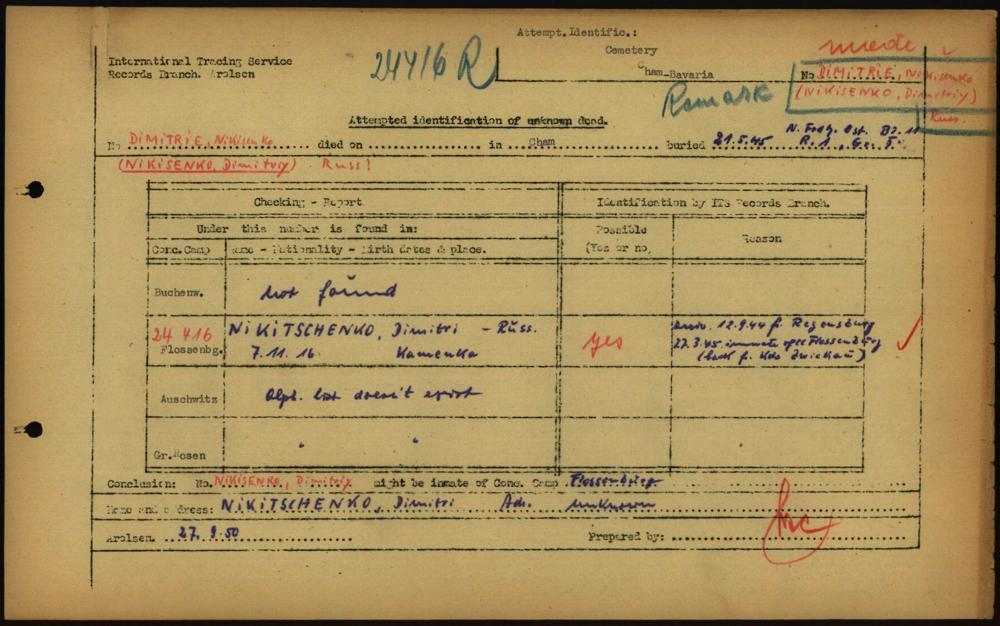 Attempt. Identific.:
Cemetery
Cham-Bavaria
International Tracing Service
Records Branch. Arolsen
24416 R
Remark
No DIMITRIE, Nikisenko
(NIKISENKO, Dimitriy)
Russ.
Attempted identification of unknown dead.
No DIMITRIE, Nikisenko died on ........ in Cham ........ buried 21.5.45
R. 1., Gr. 5.
(NIKISENKO, Dimitriy) Russ!
Checking - Report
Identification by ITS Records Branch.
Under this number is found in:
Possible
(Yes or no)
Reason
Conc.Camp
Name - Nationality - Birth dates & place.
Buchenw.
not found
24416
Flossenbg.
NIKITSCHENKO, Dimitri - Russ.
7.11.16. Kamenka
yes
arriv. 12.9.44 f. Regensburg
27.3.45 inmate of CC Flossenbürg
(back f. Kdo Zwickau)
Auschwitz
Alph. list doesn't exist
Gr.Rosen
" "
Conclusion: No. NIKISENKO, Dimitriy might be inmate of Conc. Camp Flossenbürg
Name and address: NIKITSCHENKO, Dimitri Adr. unknown
Arolsen. 27. 9. 50
Prepared by: